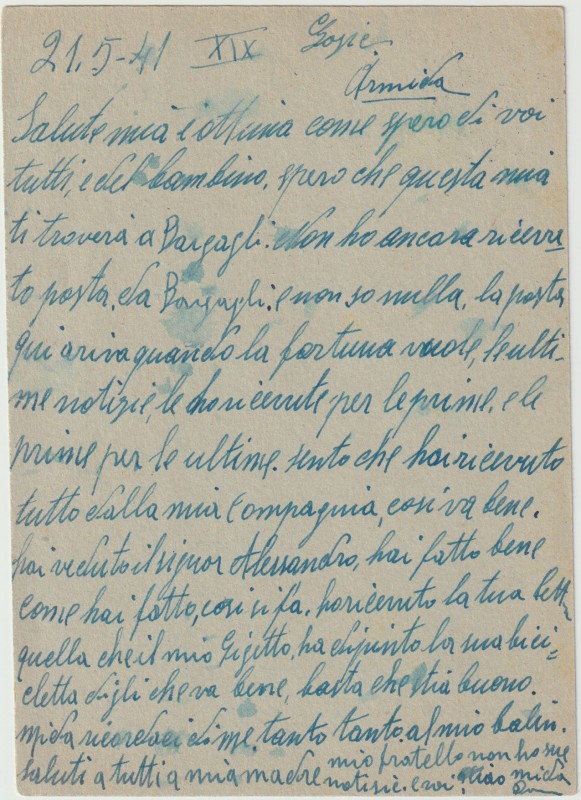 21.5-41 XIX
Armida
Salute mia è ottima come spero di voi
tutti, e del bambino. spero che questa mia
ti troverà a Bargagli. Non ho ancora ricevu=
to posta, da Bargagli. e non so nulla, la posta
qui ariva quando la fortuna vuole, le ulti-
me notizie, le ho ricevute per le prime. e le
prime per le ultime. sento che hai ricevuto
tutto dalla mia Compagnia, così va bene.
hai veduto il signor Alessandro, hai fatto bene
come hai fatto, così si fa. ho ricevuto la tua lett
quella che il mio Gigetto, ha dipinto la sua bici=
cletta digli che va bene, basta che stia buono.
mida ricordaci di me. tanto tanto. al mio balin.
saluti a tutti a mia madre mio fratello non ho sue
notizie. e voi? Ciao mida